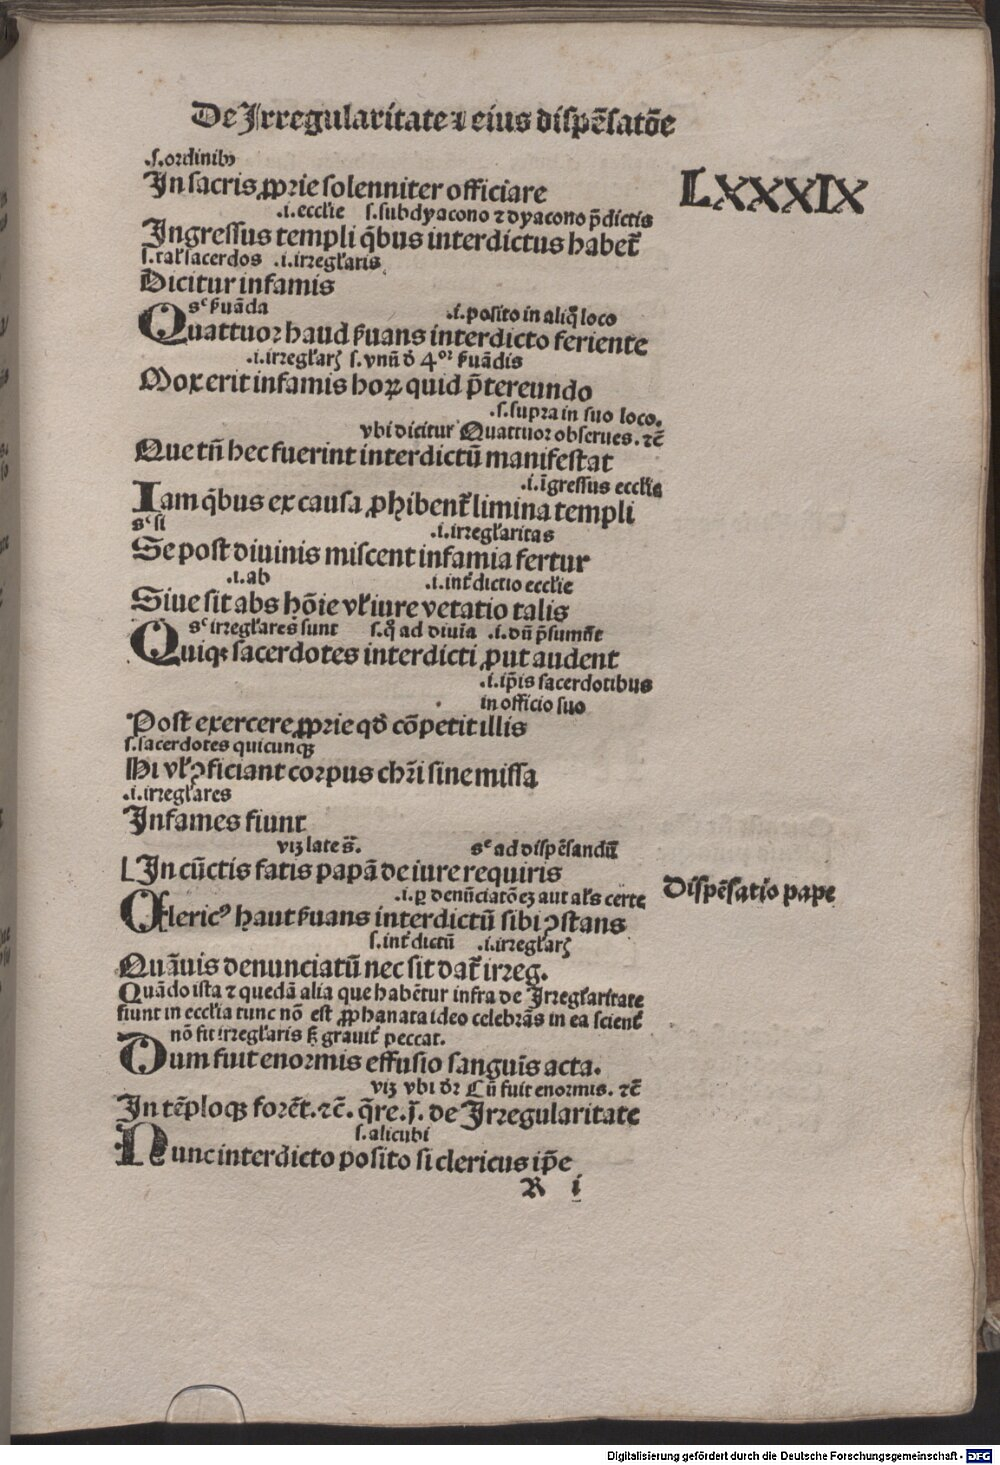 De Irregularitate ⁊ eius dispẽsatõe
LXXXIX
.s. ordinibꝫ
In sacris ꝓprie solenniter officiare
.i. ecclie s. subdyacono ⁊ dyacono p̃dictis
Ingressus templi q̃bus interdictus habet᷑
s. tal̕ sacerdos .i. irregl̕aris
Dicitur infamis
sᶜ ẜuãda .i. posito in aliq̃ loco
Quattuor haud ẜuans interdicto feriente
.i. irregl̕arꝭ s. vnũ ð 4ᵒʳ ẜuãdis
Mox erit infamis hoꝝ quid p̃tereundo
.s. supra in suo loco.
vbi dicitur Quattuor obserues. ⁊c̃
Que tñ hec fuerint interdictũ manifestat
.i. ĩgressus ecclie
Iam q̃bus ex causa ꝓhibent᷑ limina templi
sᶜ si .i. irregl̕aritas
Se post diuinis miscent infamia fertur
.i. ab .i. int᷑dictio ecclie
Siue sit abs hõie vl̕ iure vetatio talis
sᶜ irregl̕ares sunt s. q̃ ad diuĩa .i. dũ p̃sumũt
Quiqꝫ sacerdotes interdicti ꝓut audent
.i. ip̃is sacerdotibus
in officio suo
Post exercere ꝓprie qð cõpetit illis
s. sacerdotes quicunqꝫ
Hi vl̕ ꝯficiant corpus chr̃i sine missa
.i. irregl̕ares
Infames fiunt
viꝫ late s̃. sᶜ ad dispẽsandũ
⌊In cũctis fatis papã de iure requiris
Dispẽsatio pape
.i. ꝑ denũciatõeꝫ aut al̕s certe
Cleric⁹ haut ẜuans interdictũ sibi ꝯstans
s. int᷑dictũ .i. irregl̕arꝭ
Quãuis denunciatũ nec sit dat᷑ irreg.
Quãdo ista ⁊ quedã alia que habẽtur infra de Irregl̕aritate
fiunt in ecclia tunc nõ est ꝓphanata ideo celebrãs in ea scient᷑
nõ fit irregl̕aris sꝫ grauit᷑ peccat.
Dum fuit enormis effusio sanguĩs acta.
viꝫ vbi dr̃ Cũ fuit enormis. ⁊c̃
In tẽploqꝫ forẽt. ⁊c̃. q̃re. j̃. de Irregularitate
s. alicubi
Nunc interdicto posito si clericus ip̃e
R i
Digitalisierung gefördert durch die Deutsche Forschungsgemeinschaft - DFG